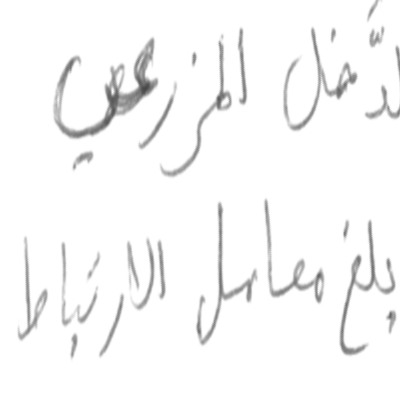 لدَّخل المزرعي
بلغ معامل الارتباط